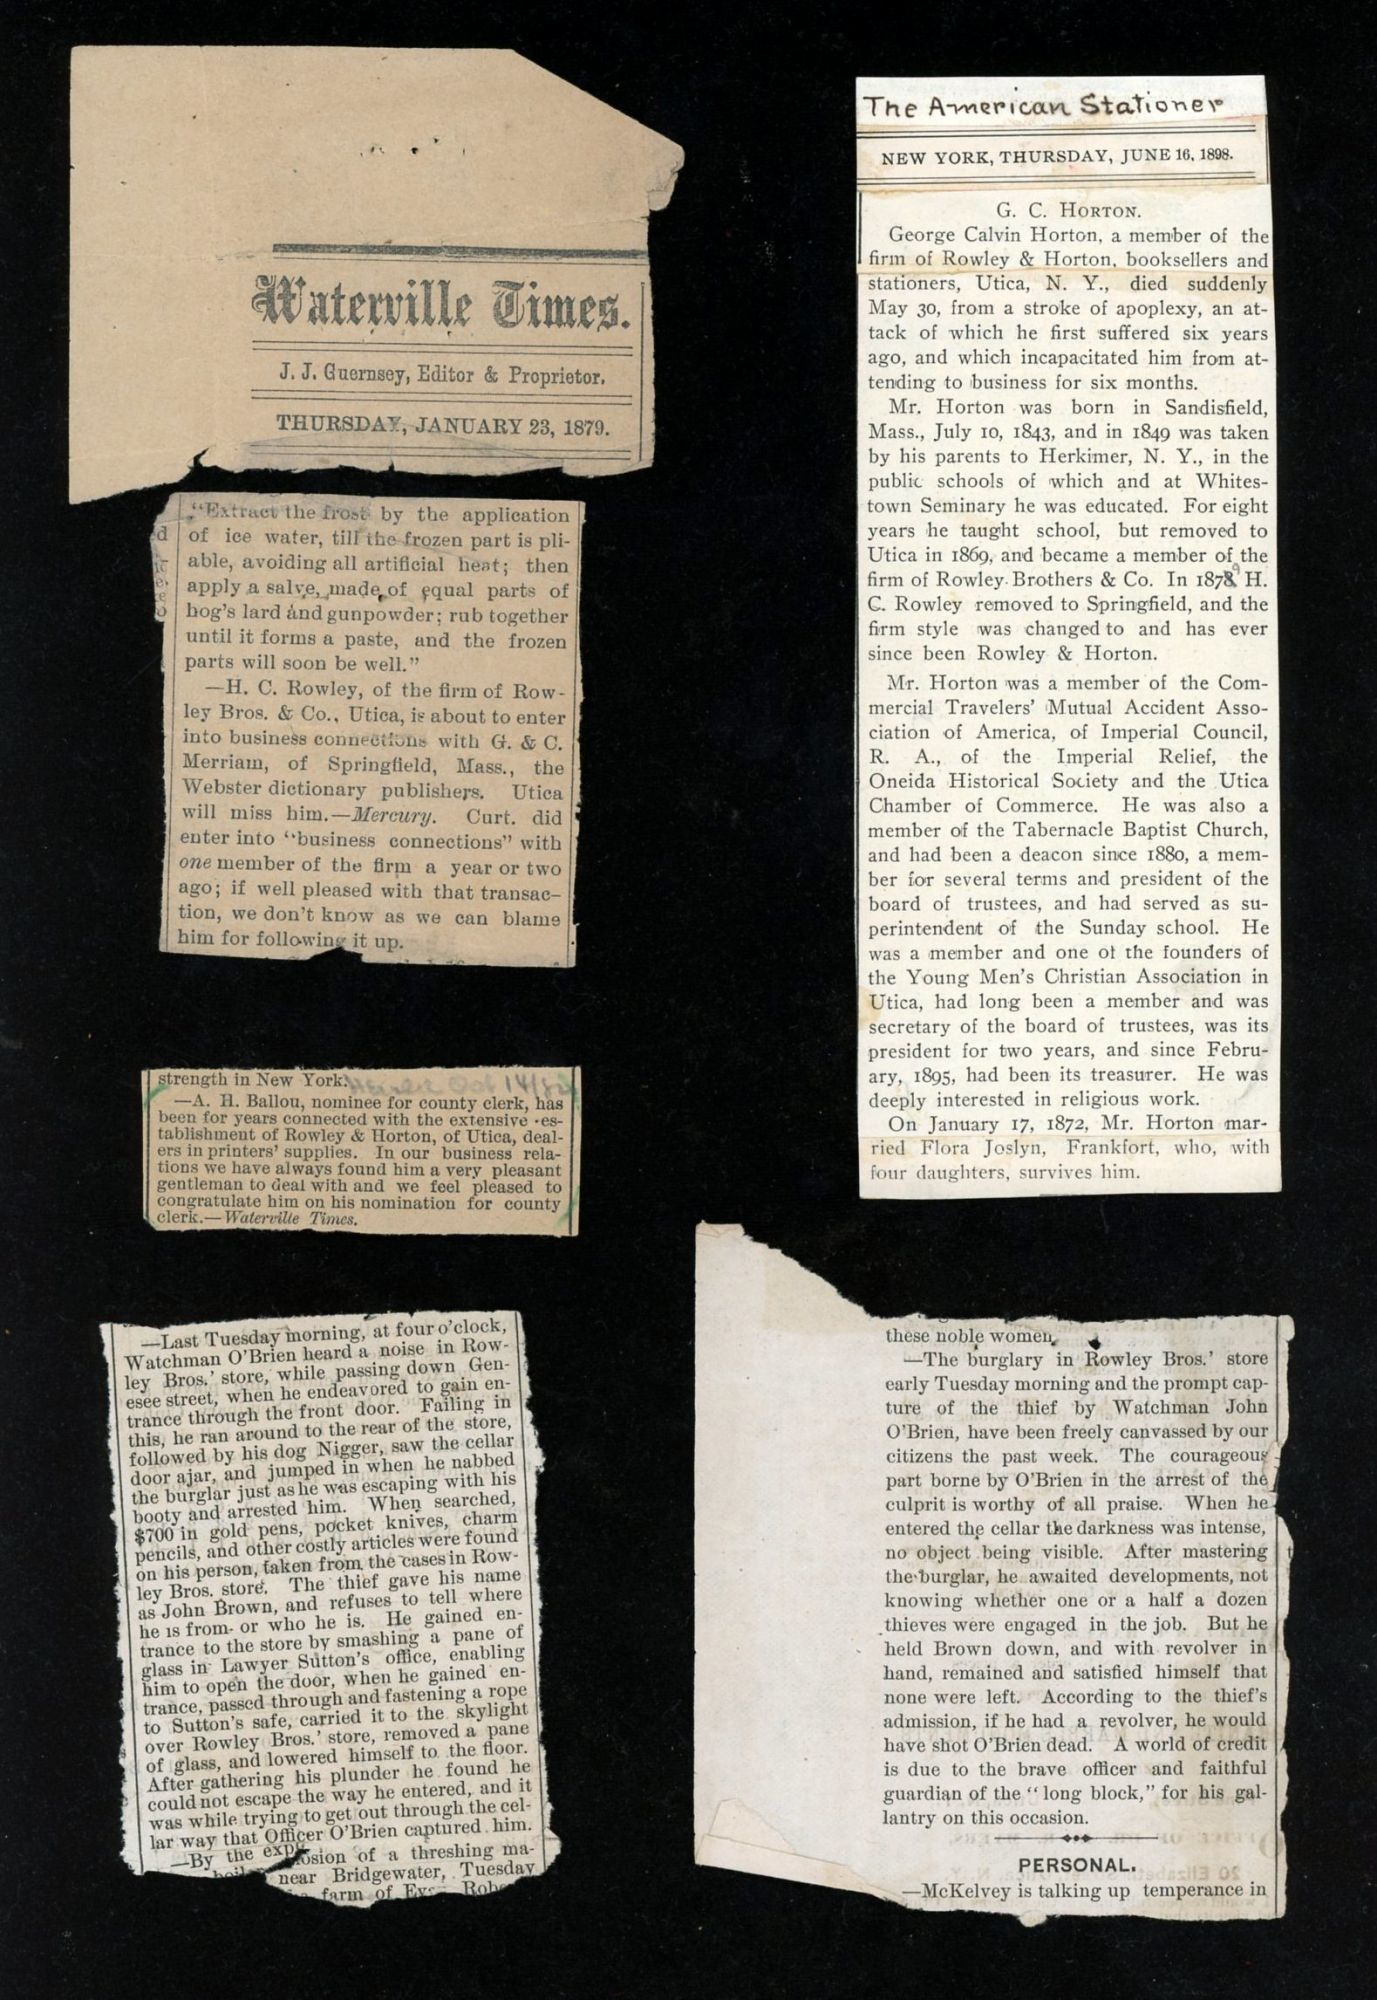 Waterville Times.
J. J. Guernsey, Editor & Proprietor.
THURSDAY, JANUARY 23, 1879.
"Extract the frost by the application
of ice water, till the frozen part is pli-
able, avoiding all artificial heat; then
apply a salve, made of equal parts of
hog's lard and gunpowder; rub together
until it forms a paste, and the frozen
parts will soon be well."
—H. C. Rowley, of the firm of Row-
ley Bros. & Co., Utica, is about to enter
into business connections with G. & C.
Merriam, of Springfield, Mass., the
Webster dictionary publishers. Utica
will miss him.—Mercury. Curt. did
enter into "business connections" with
one member of the firm a year or two
ago; if well pleased with that transac-
tion, we don't know as we can blame
him for following it up.
strength in New York.
—A. H. Ballou, nominee for county clerk, has
been for years connected with the extensive es-
tablishment of Rowley & Horton, of Utica, deal-
ers in printers' supplies. In our business rela-
tions we have always found him a very pleasant
gentleman to deal with and we feel pleased to
congratulate him on his nomination for county
clerk.—Waterville Times.
—Last Tuesday morning, at four o'clock,
Watchman O'Brien heard a noise in Row-
ley Bros.' store, while passing down Gen-
esee street, when he endeavored to gain en-
trance through the front door. Failing in
this, he ran around to the rear of the store,
followed by his dog Nigger, saw the cellar
door ajar, and jumped in when he nabbed
the burglar just as he was escaping with his
booty and arrested him. When searched,
$700 in gold pens, pocket knives, charm
pencils, and other costly articles were found
on his person, taken from the cases in Row-
ley Bros. store. The thief gave his name
as John Brown, and refuses to tell where
he is from or who he is. He gained en-
trance to the store by smashing a pane of
glass in Lawyer Sutton's office, enabling
him to open the door, when he gained en-
trance, passed through and fastening a rope
to Sutton's safe, carried it to the skylight
over Rowley Bros.' store, removed a pane
of glass, and lowered himself to the floor.
After gathering his plunder he found he
could not escape the way he entered, and it
was while trying to get out through the cel-
lar way that Officer O'Brien captured him.
—By the explosion of a threshing ma-
near Bridgewater, Tuesday
farm of
The American Stationer
NEW YORK, THURSDAY, JUNE 16, 1898.
G. C. HORTON.
George Calvin Horton, a member of the
firm of Rowley & Horton, booksellers and
stationers, Utica, N. Y., died suddenly
May 30, from a stroke of apoplexy, an at-
tack of which he first suffered six years
ago, and which incapacitated him from at-
tending to business for six months.
Mr. Horton was born in Sandisfield,
Mass., July 10, 1843, and in 1849 was taken
by his parents to Herkimer, N. Y., in the
public schools of which and at Whites-
town Seminary he was educated. For eight
years he taught school, but removed to
Utica in 1869, and became a member of the
firm of Rowley Brothers & Co. In 1878 9 H.
C. Rowley removed to Springfield, and the
firm style was changed to and has ever
since been Rowley & Horton.
Mr. Horton was a member of the Com-
mercial Travelers' Mutual Accident Asso-
ciation of America, of Imperial Council,
R. A., of the Imperial Relief, the
Oneida Historical Society and the Utica
Chamber of Commerce. He was also a
member of the Tabernacle Baptist Church,
and had been a deacon since 1880, a mem-
ber for several terms and president of the
board of trustees, and had served as su-
perintendent of the Sunday school. He
was a member and one of the founders of
the Young Men's Christian Association in
Utica, had long been a member and was
secretary of the board of trustees, was its
president for two years, and since Febru-
ary, 1895, had been its treasurer. He was
deeply interested in religious work.
On January 17, 1872, Mr. Horton mar-
ried Flora Joslyn, Frankfort, who, with
four daughters, survives him.
these noble women.
—The burglary in Rowley Bros.' store
early Tuesday morning and the prompt cap-
ture of the thief by Watchman John
O'Brien, have been freely canvassed by our
citizens the past week. The courageous
part borne by O'Brien in the arrest of the
culprit is worthy of all praise. When he
entered the cellar the darkness was intense,
no object being visible. After mastering
the burglar, he awaited developments, not
knowing whether one or a half a dozen
thieves were engaged in the job. But he
held Brown down, and with revolver in
hand, remained and satisfied himself that
none were left. According to the thief's
admission, if he had a revolver, he would
have shot O'Brien dead. A world of credit
is due to the brave officer and faithful
guardian of the "long block," for his gal-
lantry on this occasion.
PERSONAL.
—McKelvey is talking up temperance in